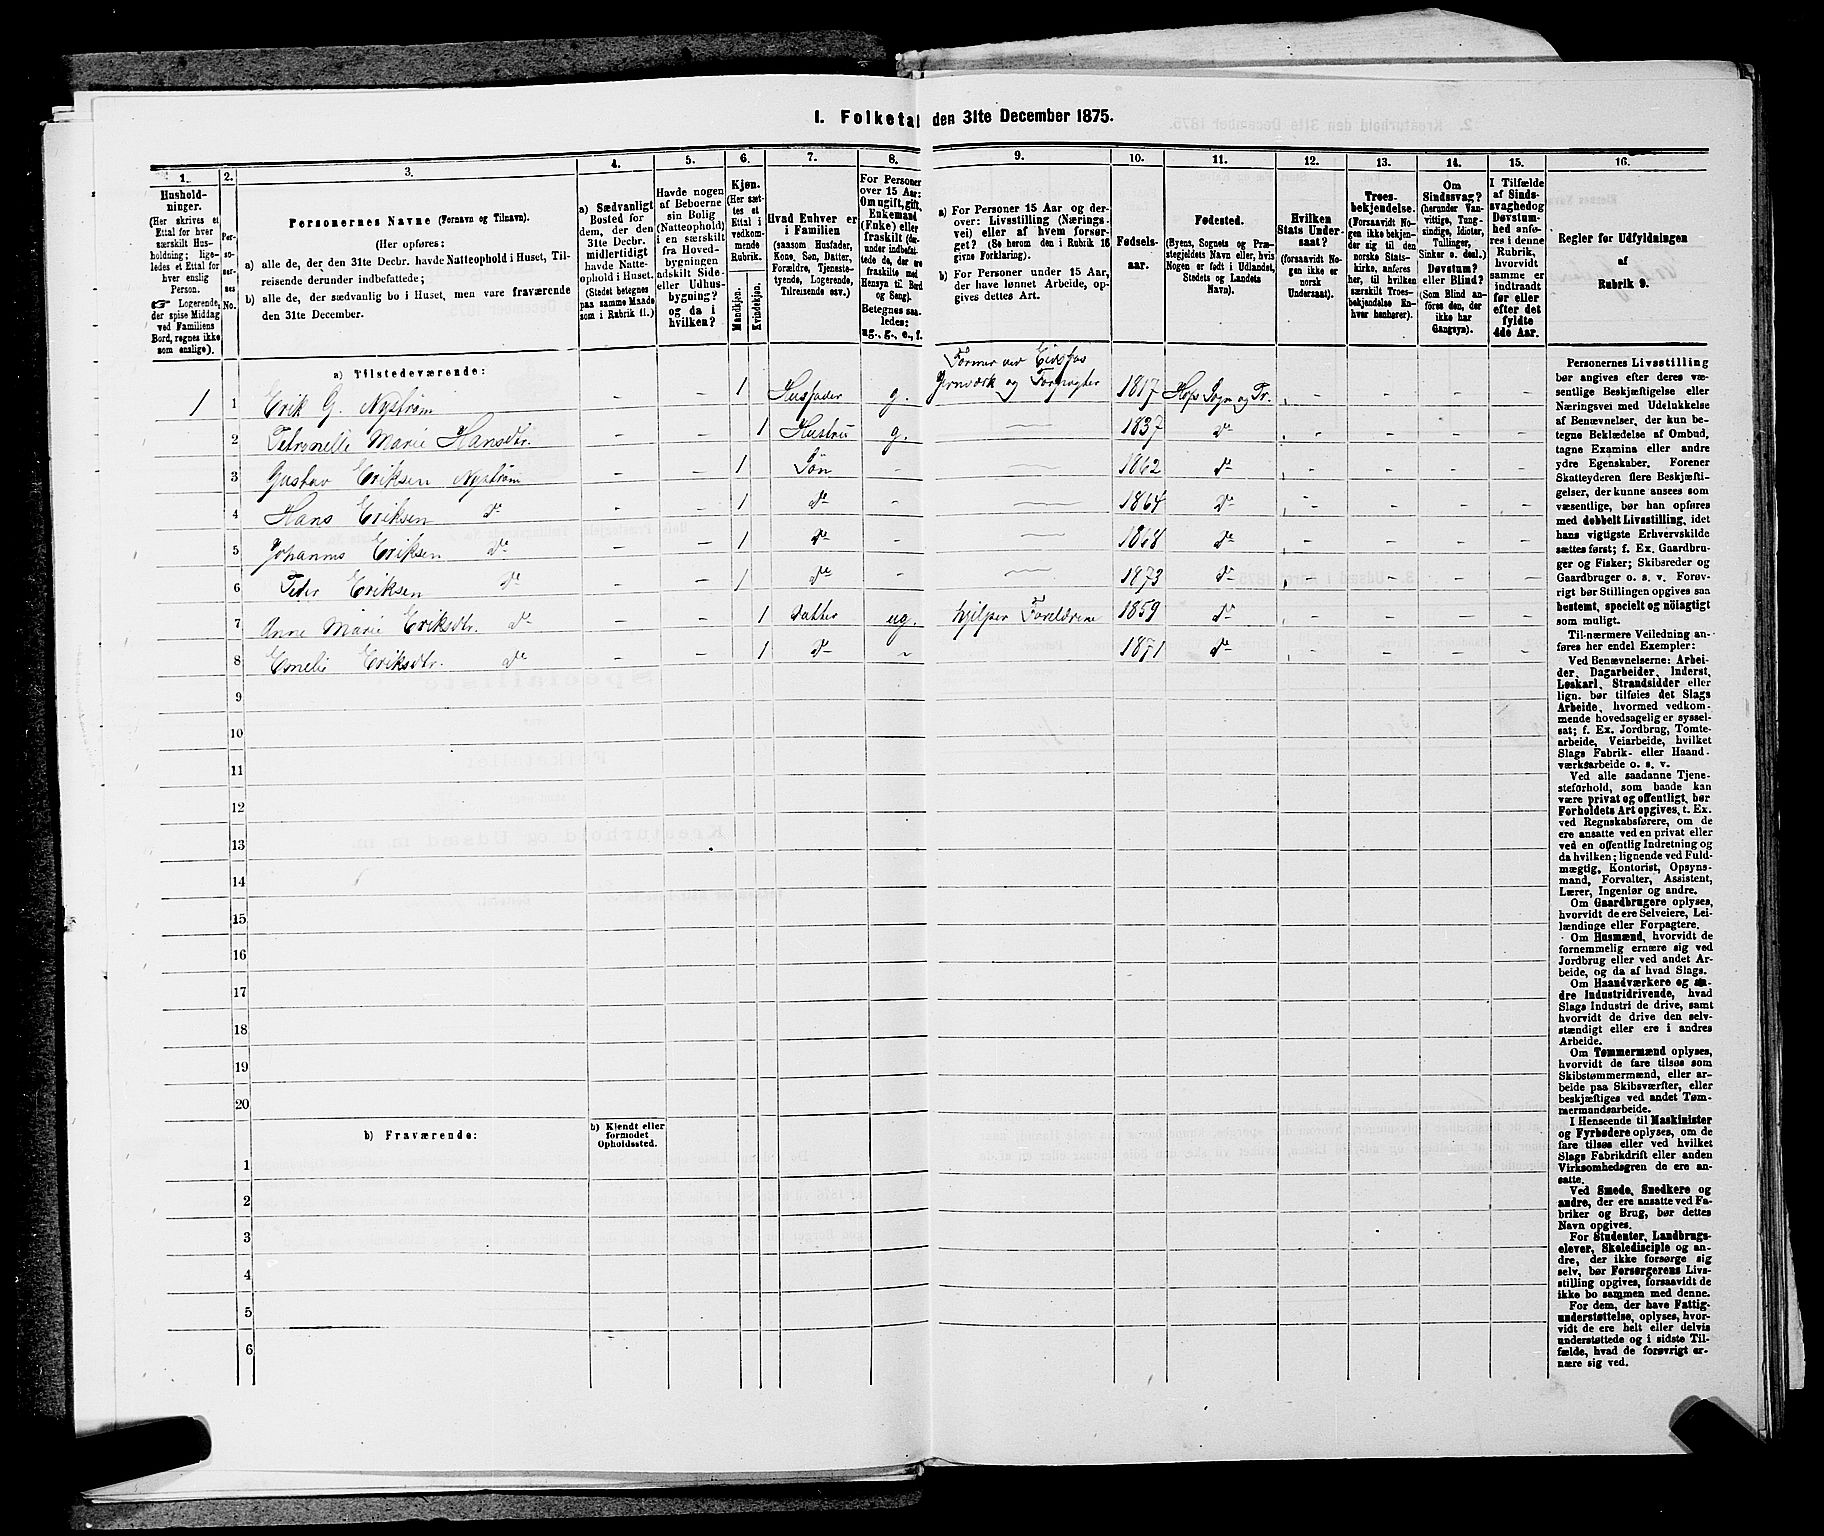 I. Folketal den 31te December 1875.
1.
2.
3.
4.
5.
6.
7.
8.
9.
10.
11.
12.
13.
14.
15.
16.
Hushold-
ninger.
(Her skrives et
Ettal for hver
særskilt Hus-
holdning; lige-
ledes et Ettal for
hver enslig
Person.
☞ Logerende,
der spise Middag
ved Familiens
Bord, regnes ikke
som enslige).
Per-
so-
ner-
nes
No.
Personernes Navne (Fornavn og Tilnavn).
(Her opføres:
a) alle de, der den 31te Decbr. havde Natteophold i Huset, Til-
reisende derunder indbefattede;
b) alle de, der sædvanlig bo i Huset, men vare fraværende
den 31te December.
a) Sædvanligt
Bosted for
dem, der den
31te Decbr.
midlertidigt
havde Natte-
ophold i Huset.
(Stedet betegnes
paa samme Maade
som i Rubrik 11.)
Havde nogen
af Beboerne
sin Bolig
(Natteophold)
i en særskilt
fra Hoved-
bygningen
adskilt Side-
eller Udhus-
bygning?
og da i
hvilken?
Kjøn.
(Her sæt-
tes et
Ettal i
vedkom-
mende
Rubrik.
Mandkjøn.
Kvindekjøn.
Hvad Enhver er
i Familien
(saasom Husfader,
Kone, Søn, Datter,
Forældre, Tjeneste-
tyende, Logerende,
Tilreisende osv.)
For Personer
over 15 Aar:
Om ugift, gift,
Enkemand
(Enke) eller
fraskilt (der-
under indbefat-
tede de, der ere
fraskilte med
Hensyn til Bord
og Seng).
Betegnes saa-
ledes:
ug., g., e., f.
a) For Personer 15 Aar og der-
over: Livsstilling (Nærings-
vei) eller af hvem forsør-
get? (Se herom den i Rubrik 16
givne Forklaring).
b) For Personer under 15 Aar,
der have lønnet Arbeide, op-
gives dettes Art.
Fødsels-
aar.
Fødested.
(Byens, Sognets og Præ-
stegjeldets Navn eller, hvis
Nogen er født i Udlandet,
Stedets og Landets
Navn).
Hvilken
Stats Under-
saat?
(forsaavidt No-
gen ikke er
norsk
Undersaat).
Troes-
bekjendelse.
(Forsaavidt No-
gen ikke bekjen-
der sig til den
norske Stats-
kirke, anføres
her, til hvilken
særskilt Troes-
bekjendelse En-
hver henhører).
Om
Sindssvag?
(herunder Van-
vittige, Tung-
sindige, Idioter,
Tullinger,
Sinker o. desl.)
Døvstum?
eller Blind?
(Som Blind an-
føres den, der
ikke har
Gangsyn).
I Tilfælde
af Sinds-
svaghed og
Døvstum-
hed anfø-
res i denne
Rubrik,
hvorvidt
samme er
indtraadt
før eller
efter det
fyldte
4de Aar.
Regler for Udfyldningen
af
Rubrik 9.
a) Tilstedeværende:
1 1 Erik G. Nystrøm - - 1 Husfader g. Former ved Eidsfos
Jernværk og Forpagter 1817 Hofs Sogn og Pr. - - - -
2 Petronelle Marie Hansdtr. - - 1 Hustru g. — 1837 do - - - -
3 Gustav Eriksen Nystrøm - - 1 Søn - — 1862 do - - - -
4 Hans Eriksen do - - 1 do - — 1864 do - - - -
5 Johannes Eriksen do - - 1 do - — 1868 do - - - -
6 Peder Eriksen do - - 1 do - — 1873 do - - - -
7 Anne Marie Eriksdtr. do - - 1 Datter ug. hjelper Forældrene 1859 do - - - -
8 Emelie Eriksdtr. do - - 1 do - 1871 do - - - -
9
10
11
12
13
14
15
16
17
18
19
20
b) Fraværende:
b) Kjendt eller
formodet
Opholdssted.
1
2
3
4
5
6
Personernes Livsstilling
bør angives efter deres væ-
sentlige Beskjæftigelse eller
Næringsvei med Udelukkelse
af Benævnelser, der kun be-
tegne Beklædelse af Ombud,
tagne Examina eller andre
ydre Egenskaber. Forener
Skatteyderen flere Beskjæfti-
gelser, der kunne ansees som
væsentlige, bør han opføres
med dobbelt Livsstilling, idet
hans vigtigste Erhvervskilde
sættes først; f. Ex. Gaardbru-
ger og Fisker; Skibsreder og
Gaardbruger o. s. v. Forøv-
rigt bør Stillingen opgives saa
bestemt, specielt og nøiagtigt
som muligt.
Til nærmere Veiledning an-
føres her endel Exempler:
Ved Benævnelserne: Arbei-
der, Dagarbeider, Inderst,
Løskarl, Strandsidder eller
lign. bør tilføies det Slags
Arbeide, hvormed vedkom-
mende hovedsagelig er syssel-
sat; f. Ex. Jordbrug, Tomte-
arbeide, Veiarbeide, hvilket
Slags Fabrik- eller Haand-
værksarbeide o. s. v.
Ved alle saadanne Tjene-
steforhold, som baade kan
være privat og offentligt, bør
Forholdets Art opgives, t. Ex.
ved Regnskabsførere, om de
ere ansatte ved en privat eller
ved en offentlig Indretning og
da hvilken; lignende ved Fuld-
mægtig, Kontorist, Opsyns-
mand, Forvalter, Assistent,
Lærer, Ingeniør og andre.
Om Gaardbrugere oplyses,
hvorvidt de ere Selveiere, Lei-
lændinge eller Forpagtere.
Om Husmænd, hvorvidt de
fornemmelig ernære sig ved
Jordbrug eller ved andet Ar-
beide, og da af hvad Slags.
Om Haandværkere og an-
dre Industridrivende, hvad
Slags Industri de drive, samt
hvorvidt de drive den selv-
stændigt eller ere i andres
Arbeide.
Om Tømmermænd oplyses,
hvorvidt de fare tilsøs som
Skibstømmermænd, eller ar-
beide paa Skibsværfter, eller
beskjæftiges ved andet Tøm-
mermandsarbeide.
I Henseende til Maskinister
og Fyrbødere oplyses, om de
fare tilsøs eller ved hvilket
Slags Fabrikdrift eller anden
Virksomhedsgren de ere an-
satte.
Ved Smede, Snedkere og
andre, der ere ansatte ved Fa-
briker og Brug, bør dettes
Navn opgives.
For Studenter, Landbrugs-
elever, Skoledisciple og an-
dre, der ikke forsørge sig
selv, bør Forsørgerens Livs-
stilling opgives, forsaavidt de
ikke bo sammen med denne.
For dem, der have Fattig-
understøttelse, oplyses, hvor-
vidt de ere helt eller delvis
understøttede og i sidste Til-
fælde, hvad de forøvrigt er-
nære sig ved.